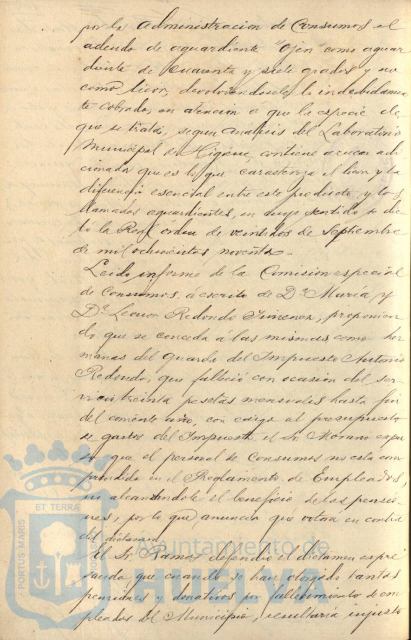 por la Administracion de Consumos el
adeudo de aguardiente "Ojen" como aguar
diente de cuarenta y siete grados y no
como licor, devolviendosele lo indebidamen
te cobrado, en atencion a que la especie de
que se trata, segun analisis del Laboratorio
Municipal de Higiene, contiene azucar adi
cionada que es lo que caracteriza el licor y la
diferencia esencial entre este producto y los
llamados aguardientes, en cuyo sentido se dic
tó la Real orden de veintidos de septiembre
de mil ochocientos noventa.-
Leido informe de la Comision especial
de Consumos, á escrito de Dª María y
Dª Leonor Redondo Jimenez, proponien
do que se conceda á las mismas como her
manas del guarda del Impuesto Antonio
Redondo, que falleció con ocasion del ser
vicio treinta pesetas mensuales hasta fin
del corriente año, con cargo al presupuesto
de gastos del Impuesto el Sr. Moreno expu
so que el personal de Consumos no está com
prendido en el Reglamento de Empleados,
no alcanzandole el beneficio de las pensio
nes, por lo que anuncia que votará en contra
del dictamen.
El Sr. Ramos defendió el dictamen expre
sando que cuando se han otorgado tantas
pensiones y donativos por fallecimiento de em
pleados del Municipio, resultaria injusto
PORTUS MARIS
ET TERRA
Ayuntamiento de